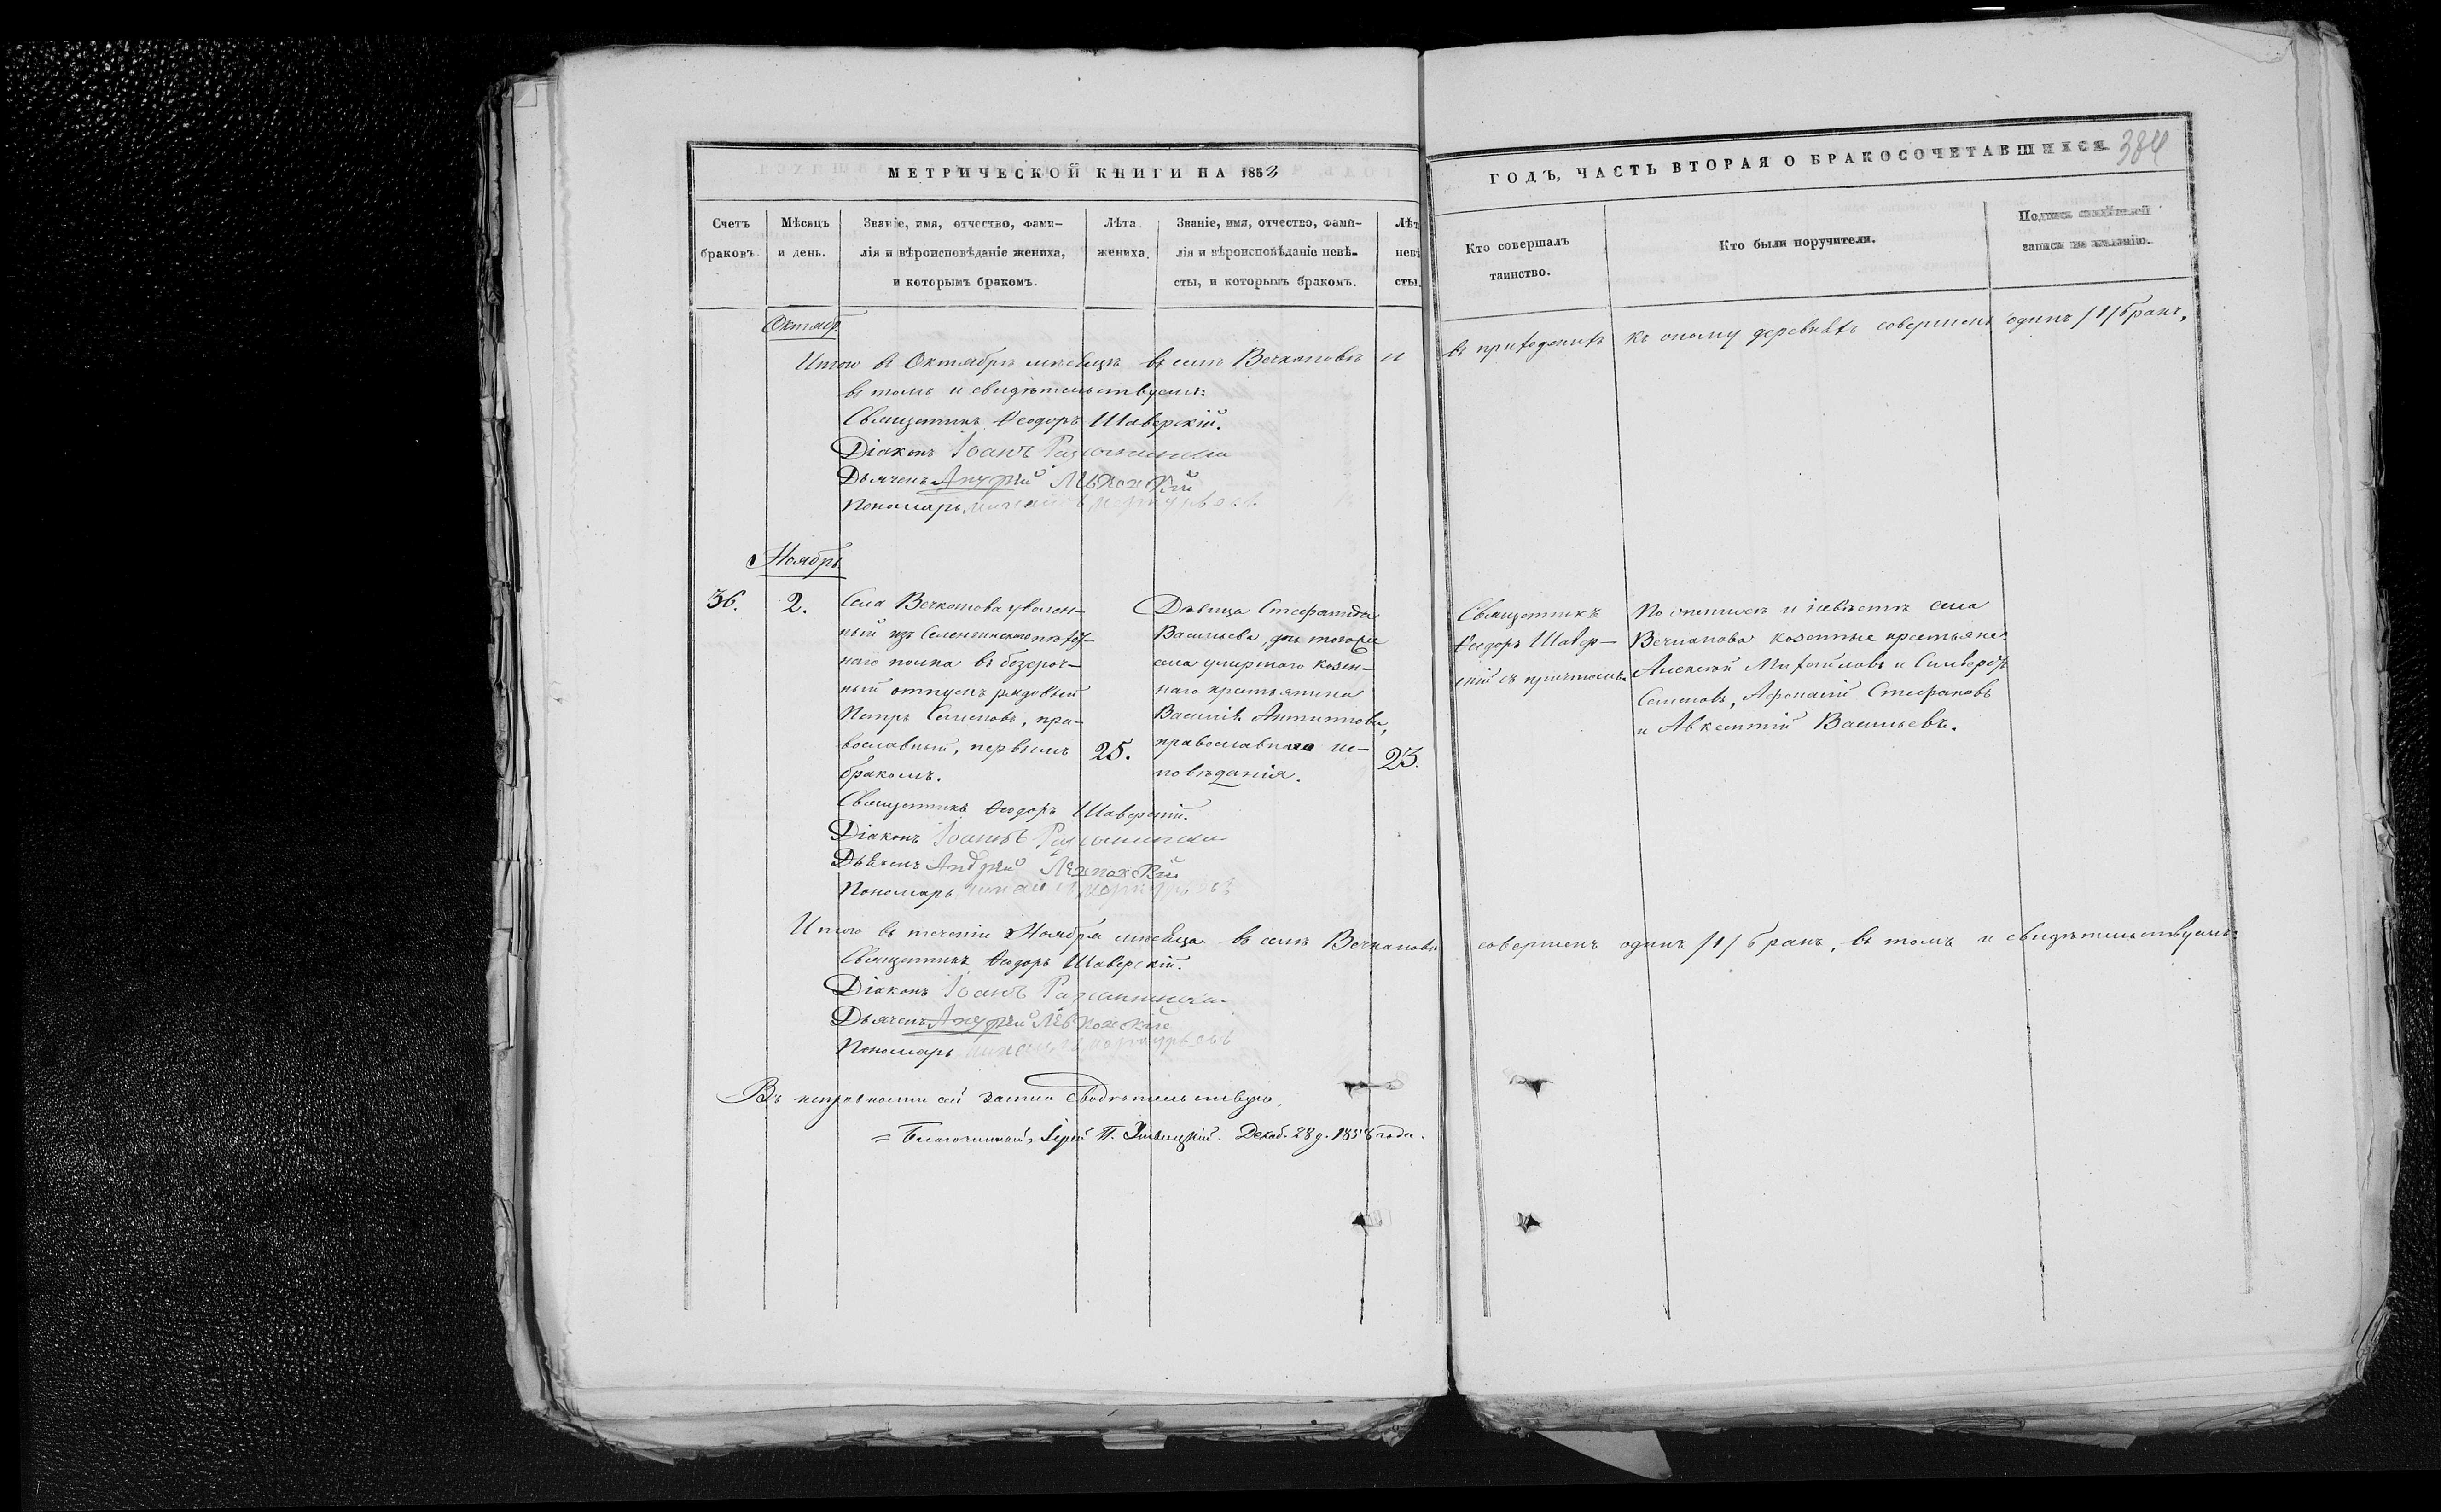 МЕТРИЧЕСКОЙ КНИГИ НА 1858
ГОДЪ, ЧАСТЬ ВТОРАЯ О БРАКОСОЧЕТАВШИХСЯ
384
Счетъ браковъ.
Мѣсяцъ и день.
Званіе, имя, отчество, фами-
лія и вѣроисповѣданіе жениха,
и которымъ бракомъ.
Лѣта жениха.
Званіе, имя, отчество, фами-
лія и вѣроисповѣданіе невѣ-
сты, и которымъ бракомъ.
Лѣт невѣ сты.
Кто совершалъ таинство.
Кто были поручители.
Подпись свидѣтелей записи по желанію.
Октябр.
Итого въ Октябрѣ мѣсяцѣ въ селѣ Вечкановѣ и въ приходскихъ къ оному деревняхъ совершенъ одинъ /1/ бракъ,
въ томъ и свидѣтельствуемъ:
Священникъ Ѳеодоръ Шаверскій.
Діаконъ Іоанъ
Дьячекъ Андрей
Пономарь
Ноябрь
36.
2.
Села Вечканова уволен-
ный изъ Селенгинскаго пѣхот-
наго полка въ безсроч-
ный отпускъ рядовый
Петръ Семеновъ, пра-
вославный, первымъ
бракомъ.
25.
Дѣвица Стефанида
Васильева, дочь тогоже
села умершаго казен-
наго крестьянина
Василія Антипова,
православнаго ис-
повѣданія.
23.
Священникъ
Ѳеодоръ Шавер-
скій съ причтомъ.
По женихѣ и невѣстѣ села
Вечканова казенные крестьяне:
Алексѣй Михайловъ и
Семеновъ, Афонасій Стефановъ
и Авксентій Васильевъ.
Священникъ Ѳеодоръ Шаверскій.
Діаконъ Іоаннъ
Дьячекъ Андрей
Пономарь
Итого въ теченіи Ноября мѣсяца въ селѣ Вечкановѣ совершенъ одинъ /1/ бракъ, въ томъ и свидѣтельствуемъ:
Священникъ Ѳеодоръ Шаверскій.
Діаконъ Іоанъ
Дьячекъ Андрей
Пономарь
Въ исправности сей записи свидѣтельствую,
= Благочинный, Іерей П. Декаб. 28 д. 1858 года.